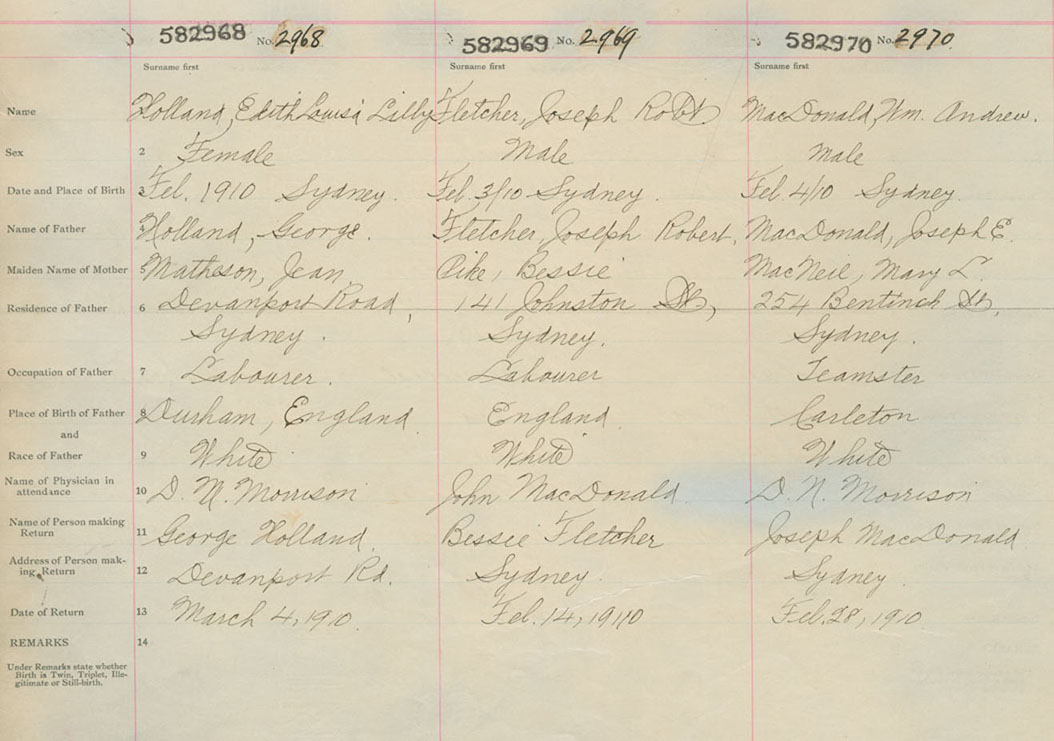 582968 No. 2968 582969 No. 2969 582970 No. 2970
Surname first Surname first Surname first
Name Holland, Edith Louisa Lilly Fletcher, Joseph Robt. MacDonald, Wm. Andrew.
Sex 2 Female Male Male
Date and Place of Birth 3 Feb. 1910 Sydney. Feb. 3/10 Sydney. Feb. 4/10 Sydney.
Name of Father Holland, George. Fletcher, Joseph Robert. MacDonald, Joseph E.
Maiden Name of Mother 5 Matheson, Jean Pike, Bessie MacNeil, Mary L.
Residence of Father 6 Devanport Road, 141 Johnston St, 254 Bentinch St,
Sydney. Sydney. Sydney.
Occupation of Father 7 Labourer. Labourer Teamster
Place of Birth of Father 8 Durham, England England Carleton
and
Race of Father 9 White White White
Name of Physician in
attendance 10 D. M. Morrison John MacDonald D. N. Morrison
Name of Person making
Return 11 George Holland. Bessie Fletcher Joseph MacDonald
Address of Person mak-
ing Return 12 Devanport Rd. Sydney Sydney
Date of Return 13 March 4, 1910. Feb. 14, 1910 Feb. 28, 1910
REMARKS 14
Under Remarks state whether
Birth is Twin, Triplet, Ille-
gitimate or Still-birth.